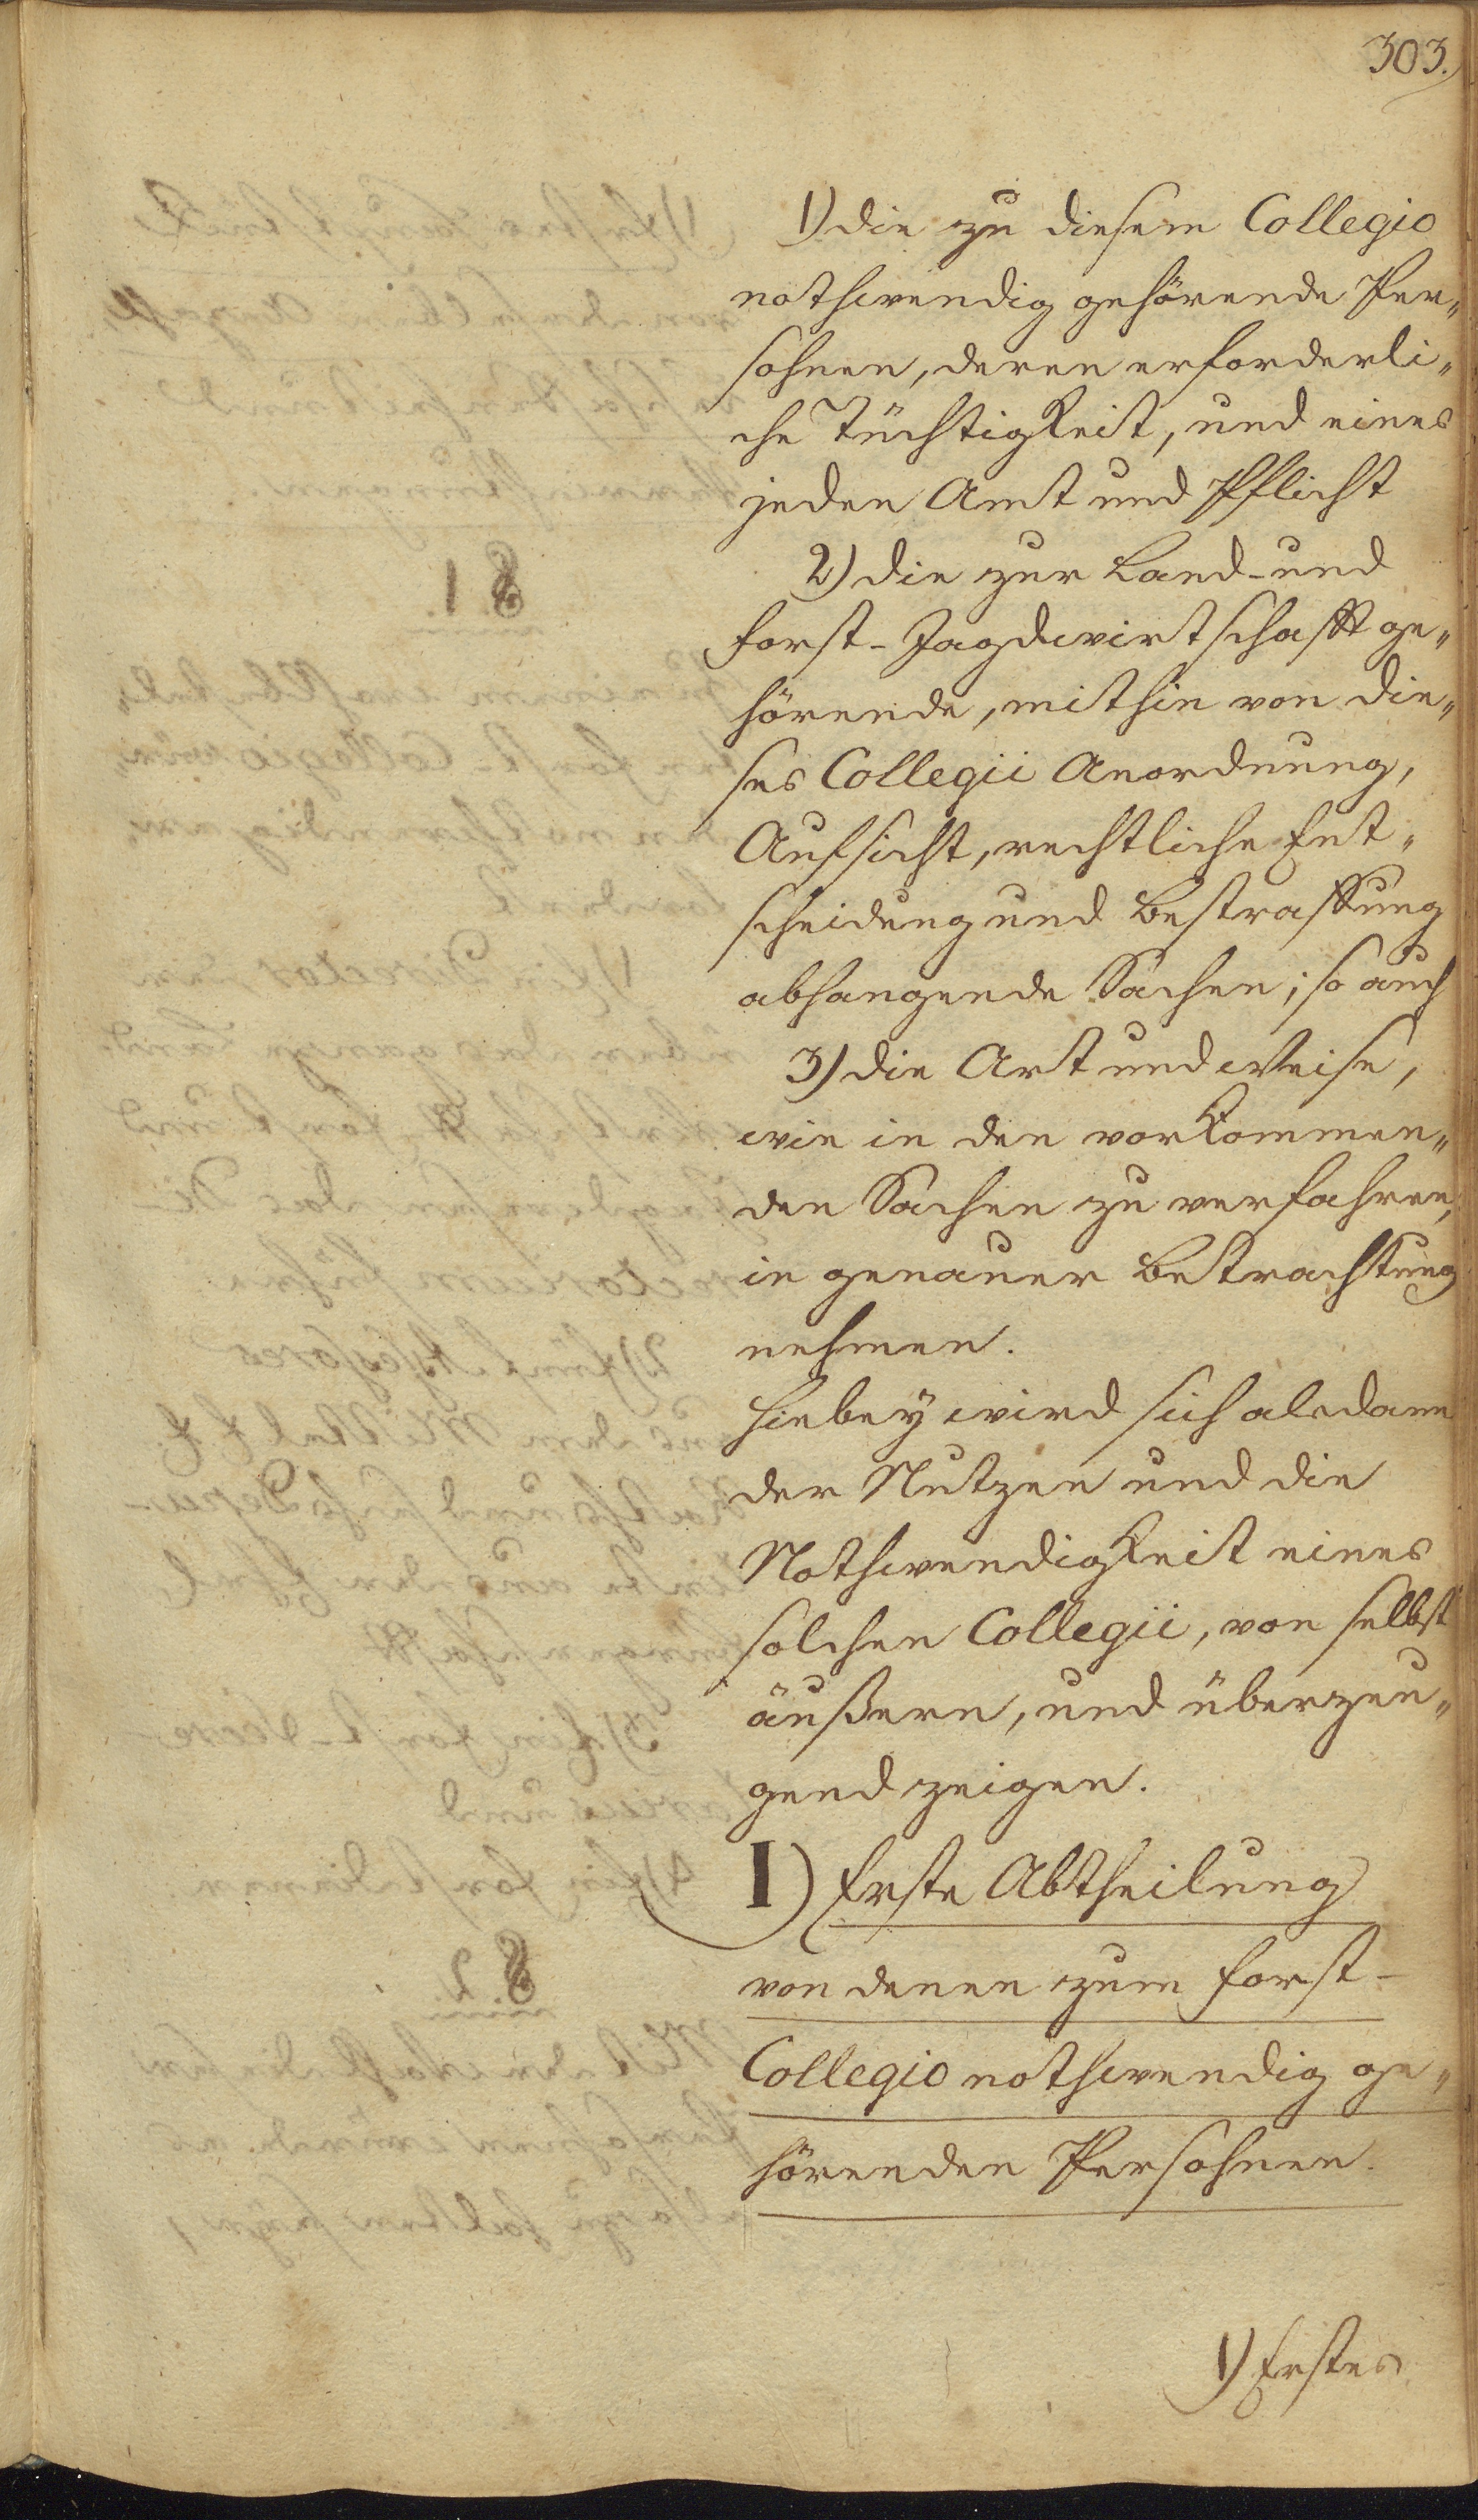 303.
1) die zu diesem Collegio
nothwendig gehörende Per„
sohnen, deren erforderli„
che Tüchtigkeit, und eines
jeden Amt und Pflicht
2) die zur Land- und
Forst-Jagdwirtschafft ge„
hörende, mithin von die„
ses Collegii Anordnung,
Aufsicht, rechtliche Ent„
scheidung und Bestraffung
abhangende Sachen; so auch
3) die Art und Weise,
wie in den vorkommen„
den Sachen zu verfahren,
in genauer Betrachtung
nehmen.
Hiebey wird sich alsdann
der Nutzen und die
Nothwendigkeit eines
solchen Collegii, von selbst
äußern, und überzeu„
gend zeigen.
I) Erste Abtheilung
von denen zum Forst-
Collegio nothwendig ge„
hörenden Persohnen.
1) Erstes